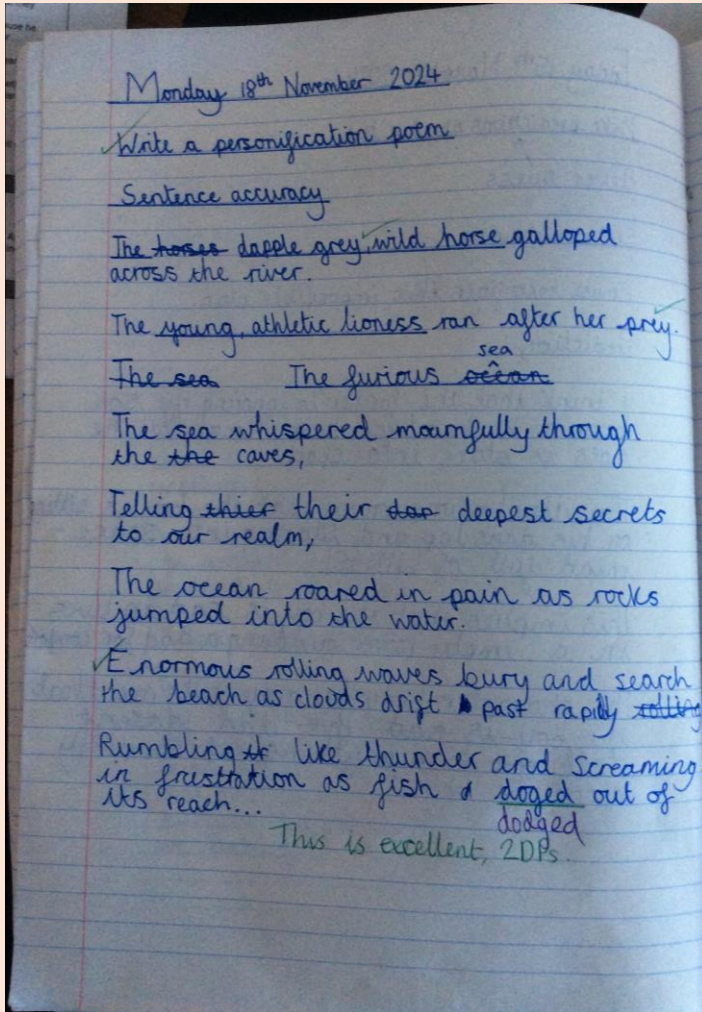 Monday 18th November 2024
Write a personification poem
Sentence accuracy
The horses dapple grey, wild horse galloped
across the river.
The young, athletic lioness ran after her prey.
sea
The sea The furious ocean
The sea whispered mournfully through
the the caves,
Telling thier their deepest secrets
to our realm,
The ocean roared in pain as rocks
jumped into the water.
Enormous rolling waves bury and search
the beach as clouds drift past rapidly rolling
Rumbling like thunder and screaming
in frustration as fish doged out of
its reach...
dodged
This is excellent, 2DPs.